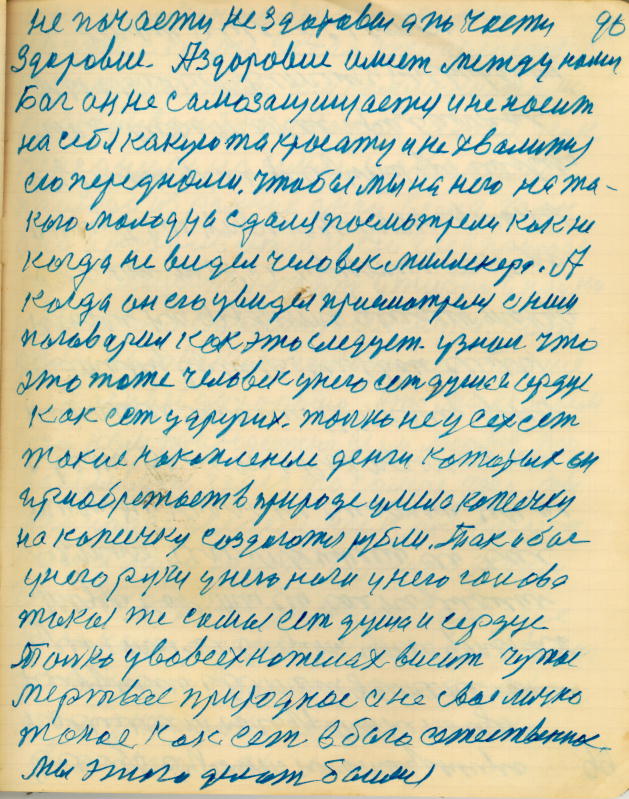 не по части не здоровия а по части 96
здоровие. А здоровие имеет между ними
Бог он не самозащищается и не носит
на себя какую то красату и не хвалится
его перед номи. Чтобы мы на него на та-
кого молодца сдалы посмотрели как ни
когда не видел человек миллинера. А
когда он его увидел присмотрелся с ним
поговарил как это следует. узнал что
это тоже человек у него ест душа и сердце
как ест у других. толко не у всех ест
такие накопление денги которых он
приобретает в природе умела копеечку
на копеечку создаются рубли. Так и бог
у него руки у него ноги у него голова
такая же самая ест душа и сердце
Толко у во всех на телах висит чужое
мертвое природное а не свое лично
такое как ест в бога естественное
мы этого делат боимся